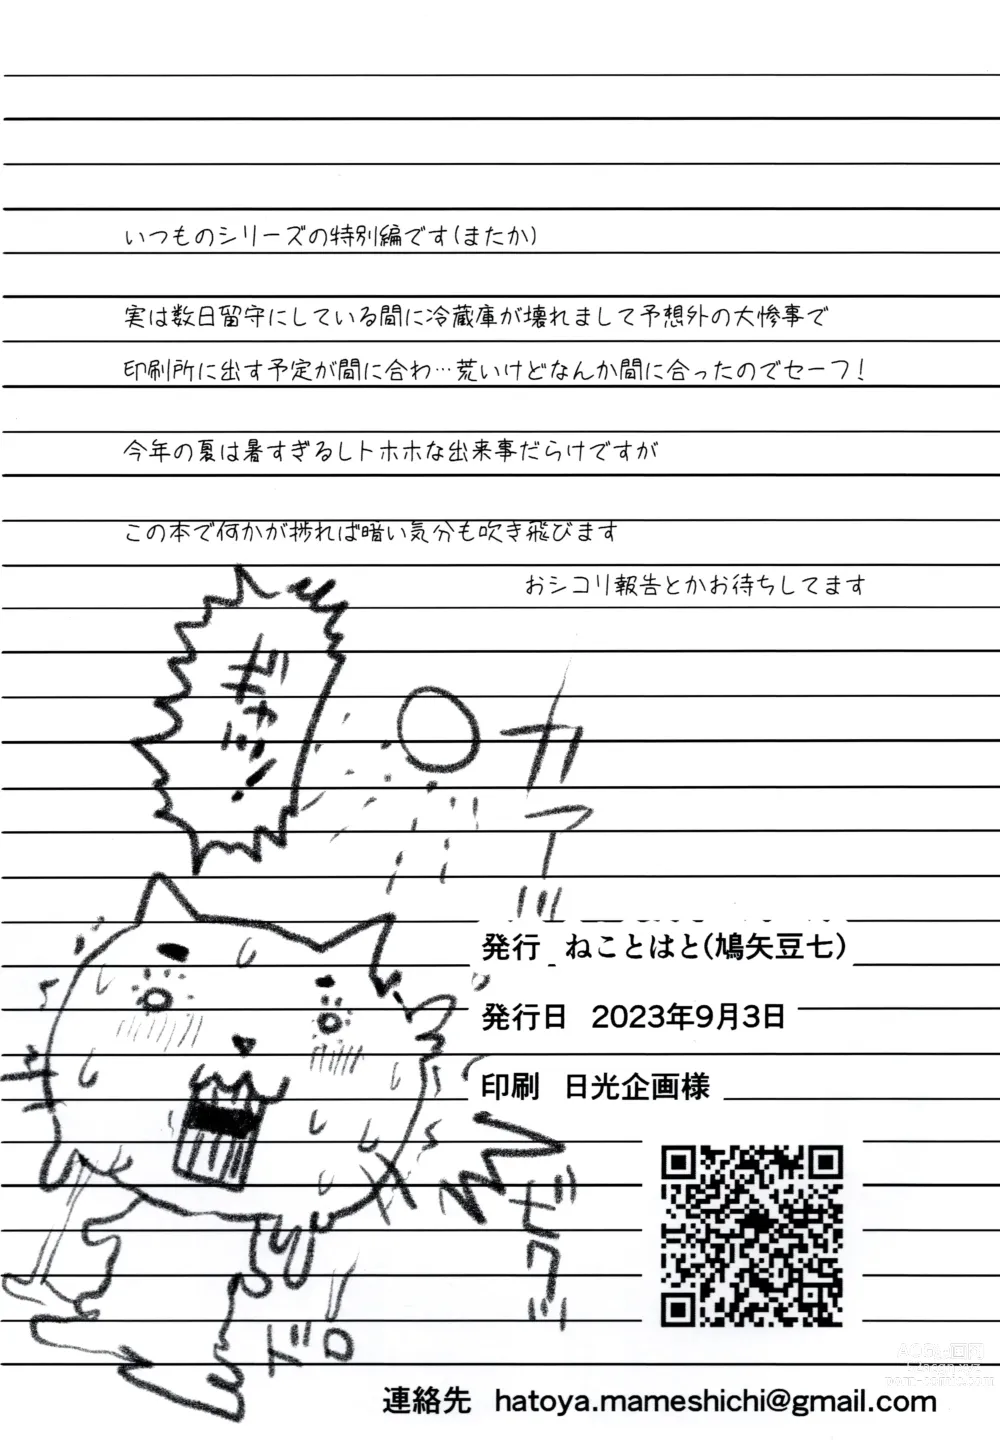 いつものシリーズの特別編です(またか)
実は数日留守にしている間に冷蔵庫が壊れまして予想外の大惨事で
印刷所に出す予定が間に合わ…荒いけどなんか間に合ったのでセーフ!
今年の夏は暑すぎるしトホホな出来事だらけですが
この本で何かが捗れば暗い気分も吹き飛びます
おシコリ報告とかお待ちしてます
ギャッ!
カアッ
発行 ねことはと(鳩矢豆七)
発行日 2023年9月3日
印刷 日光企画様
ビクッ
ドロ
連絡先 hatoya.mameshichi@gmail.com